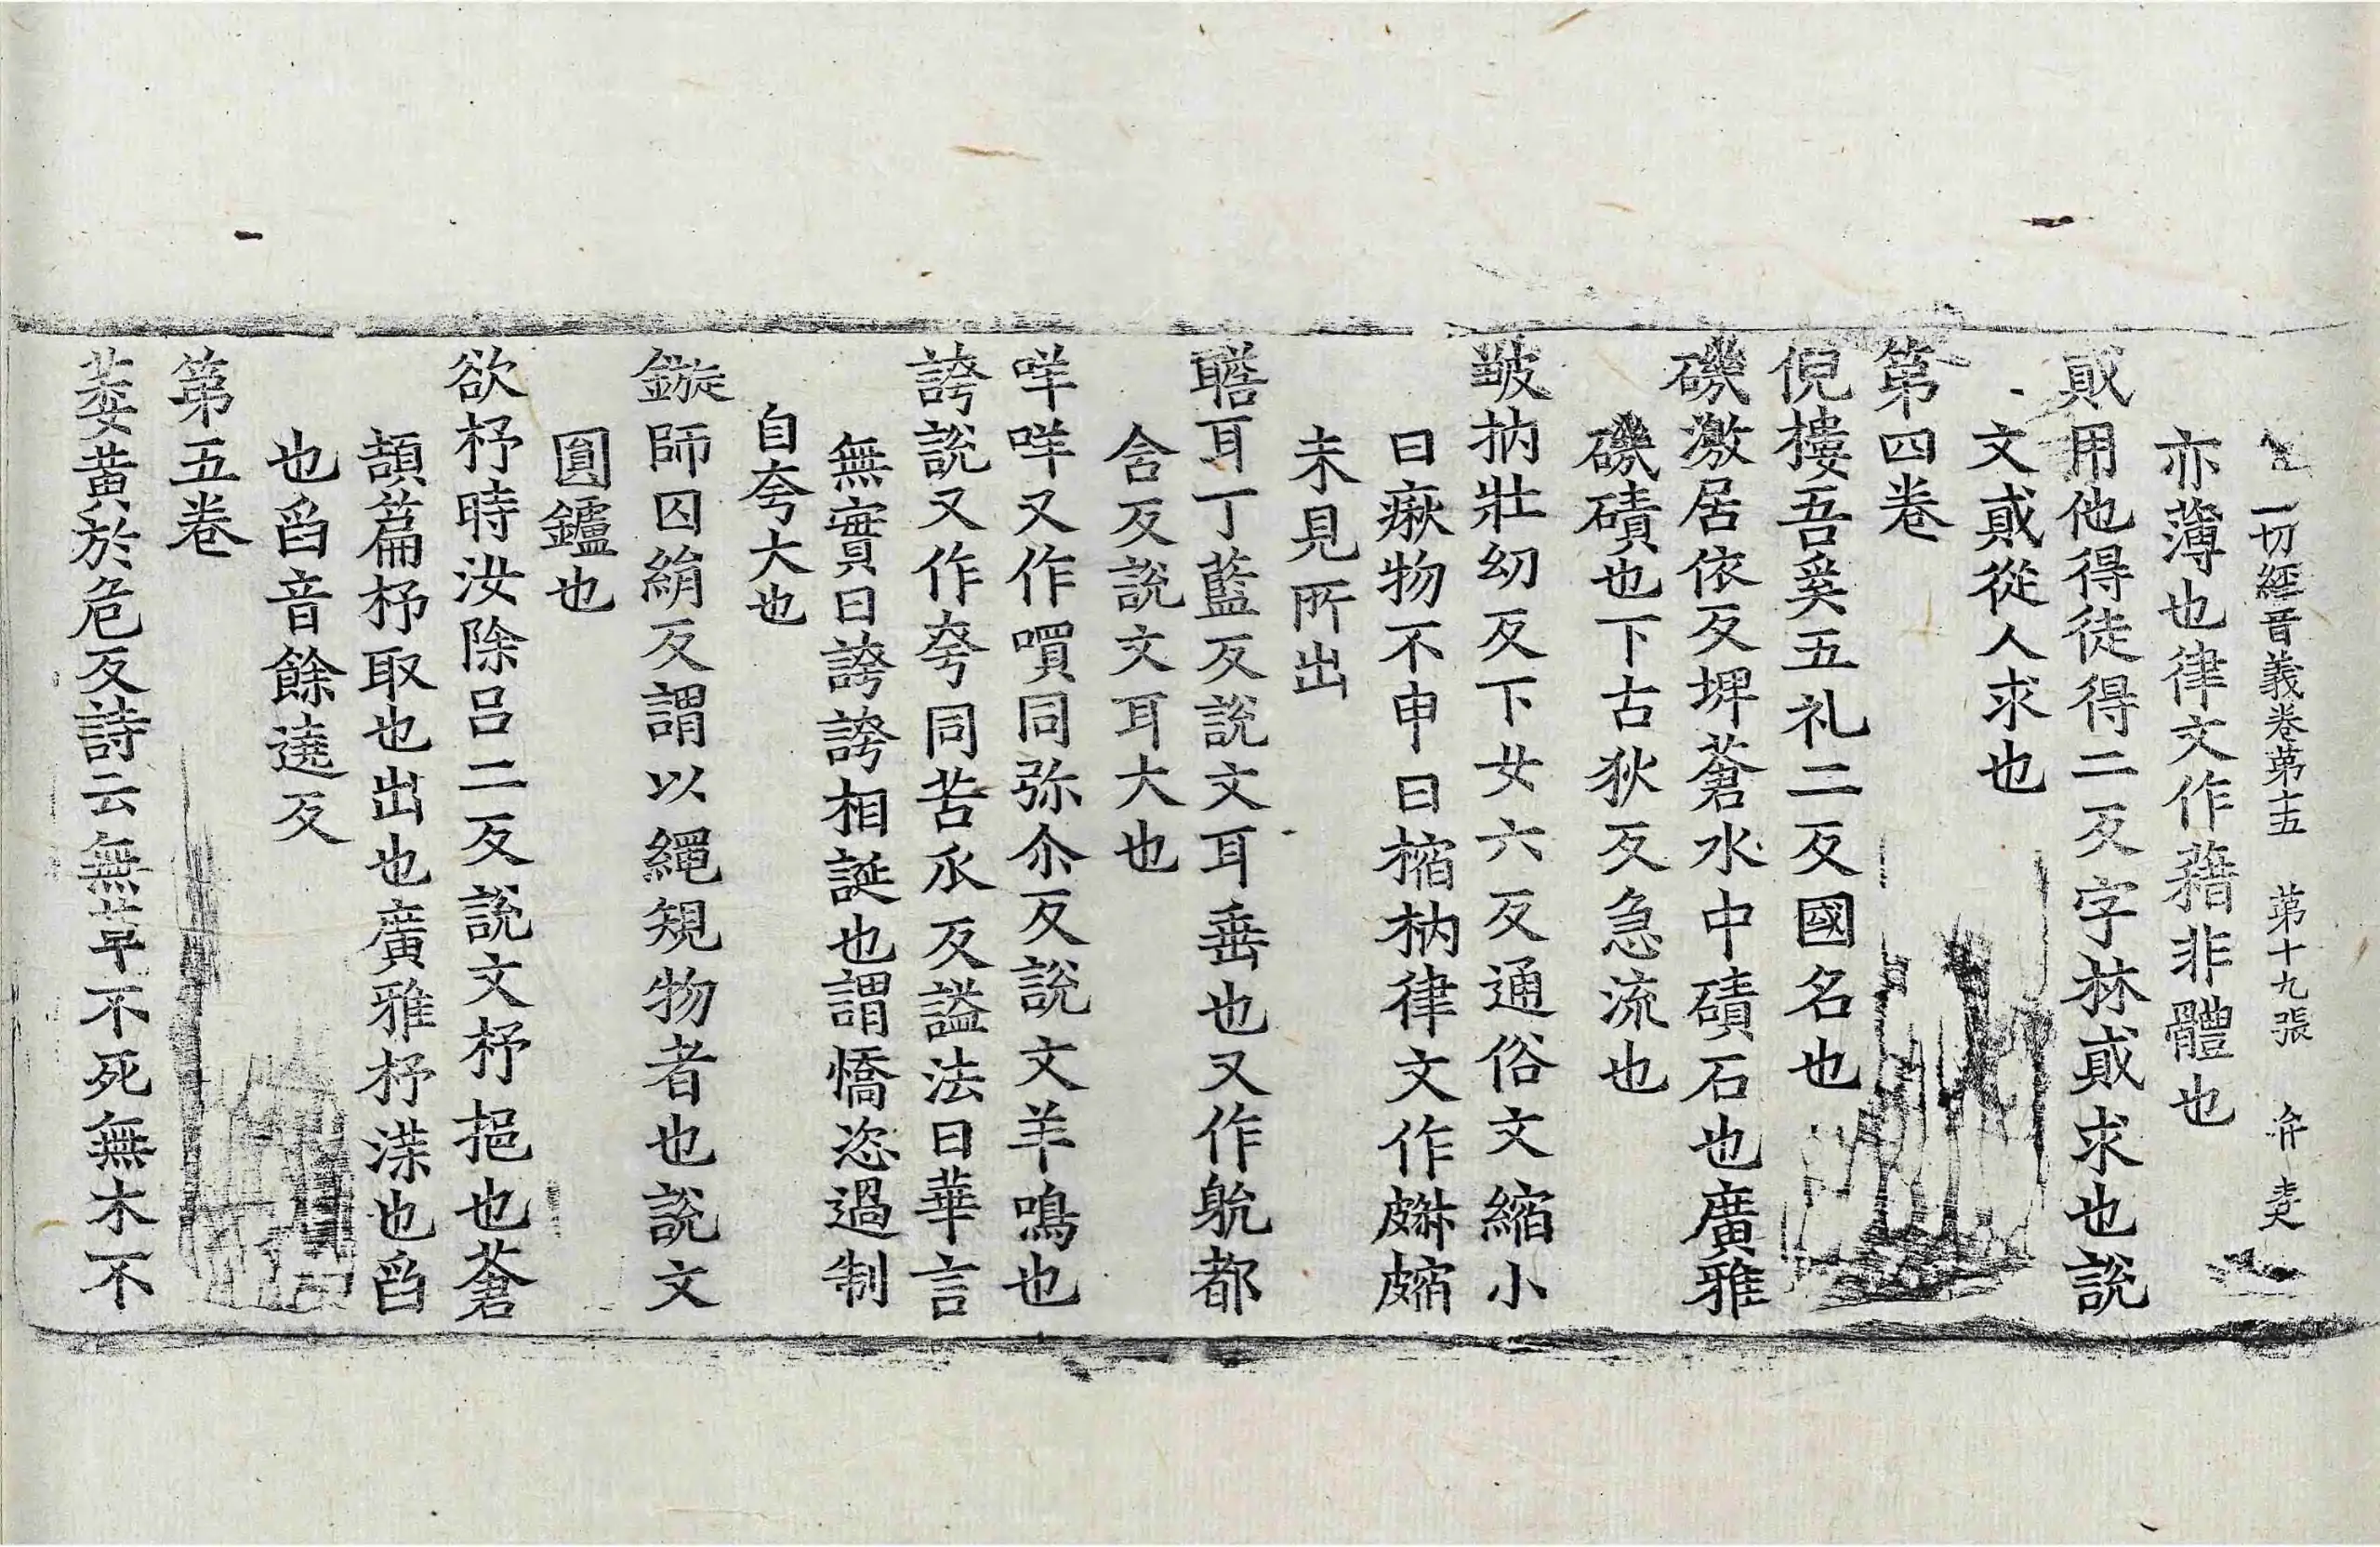 一切經音義卷第十五 第十九張 弁 
亦薄也律文作䕲非體也
貮用他得徒得二反字林貮求也說
文貮從人求也
第四卷
倪樓吾奚五礼二反國名也
磯激居依反埤蒼水中磧石也廣雅
磯磧也下古狄反急流也
皺抐壯幼反下女六反通俗文縮小
曰瘷物不申曰樎枘律文作㿺
未見所出
聸耳丁藍反說文耳垂也又作躭都
含反說文耳大也
咩咩又作哶同弥尒反說文羊鳴也
誇說又作夸同苦瓜反謚法曰華言
無實曰誇誇相誕也謂憍恣過制
自夸大也
鏇師囚絹反謂以繩規物者也說文
圓鑪也
欲杼時汝除呂二反說文杼挹也蒼
頡篇杼取也出也廣雅杼渫也舀
也舀音餘遶反
第五卷
萎黃於危反詩云無草不死無木不